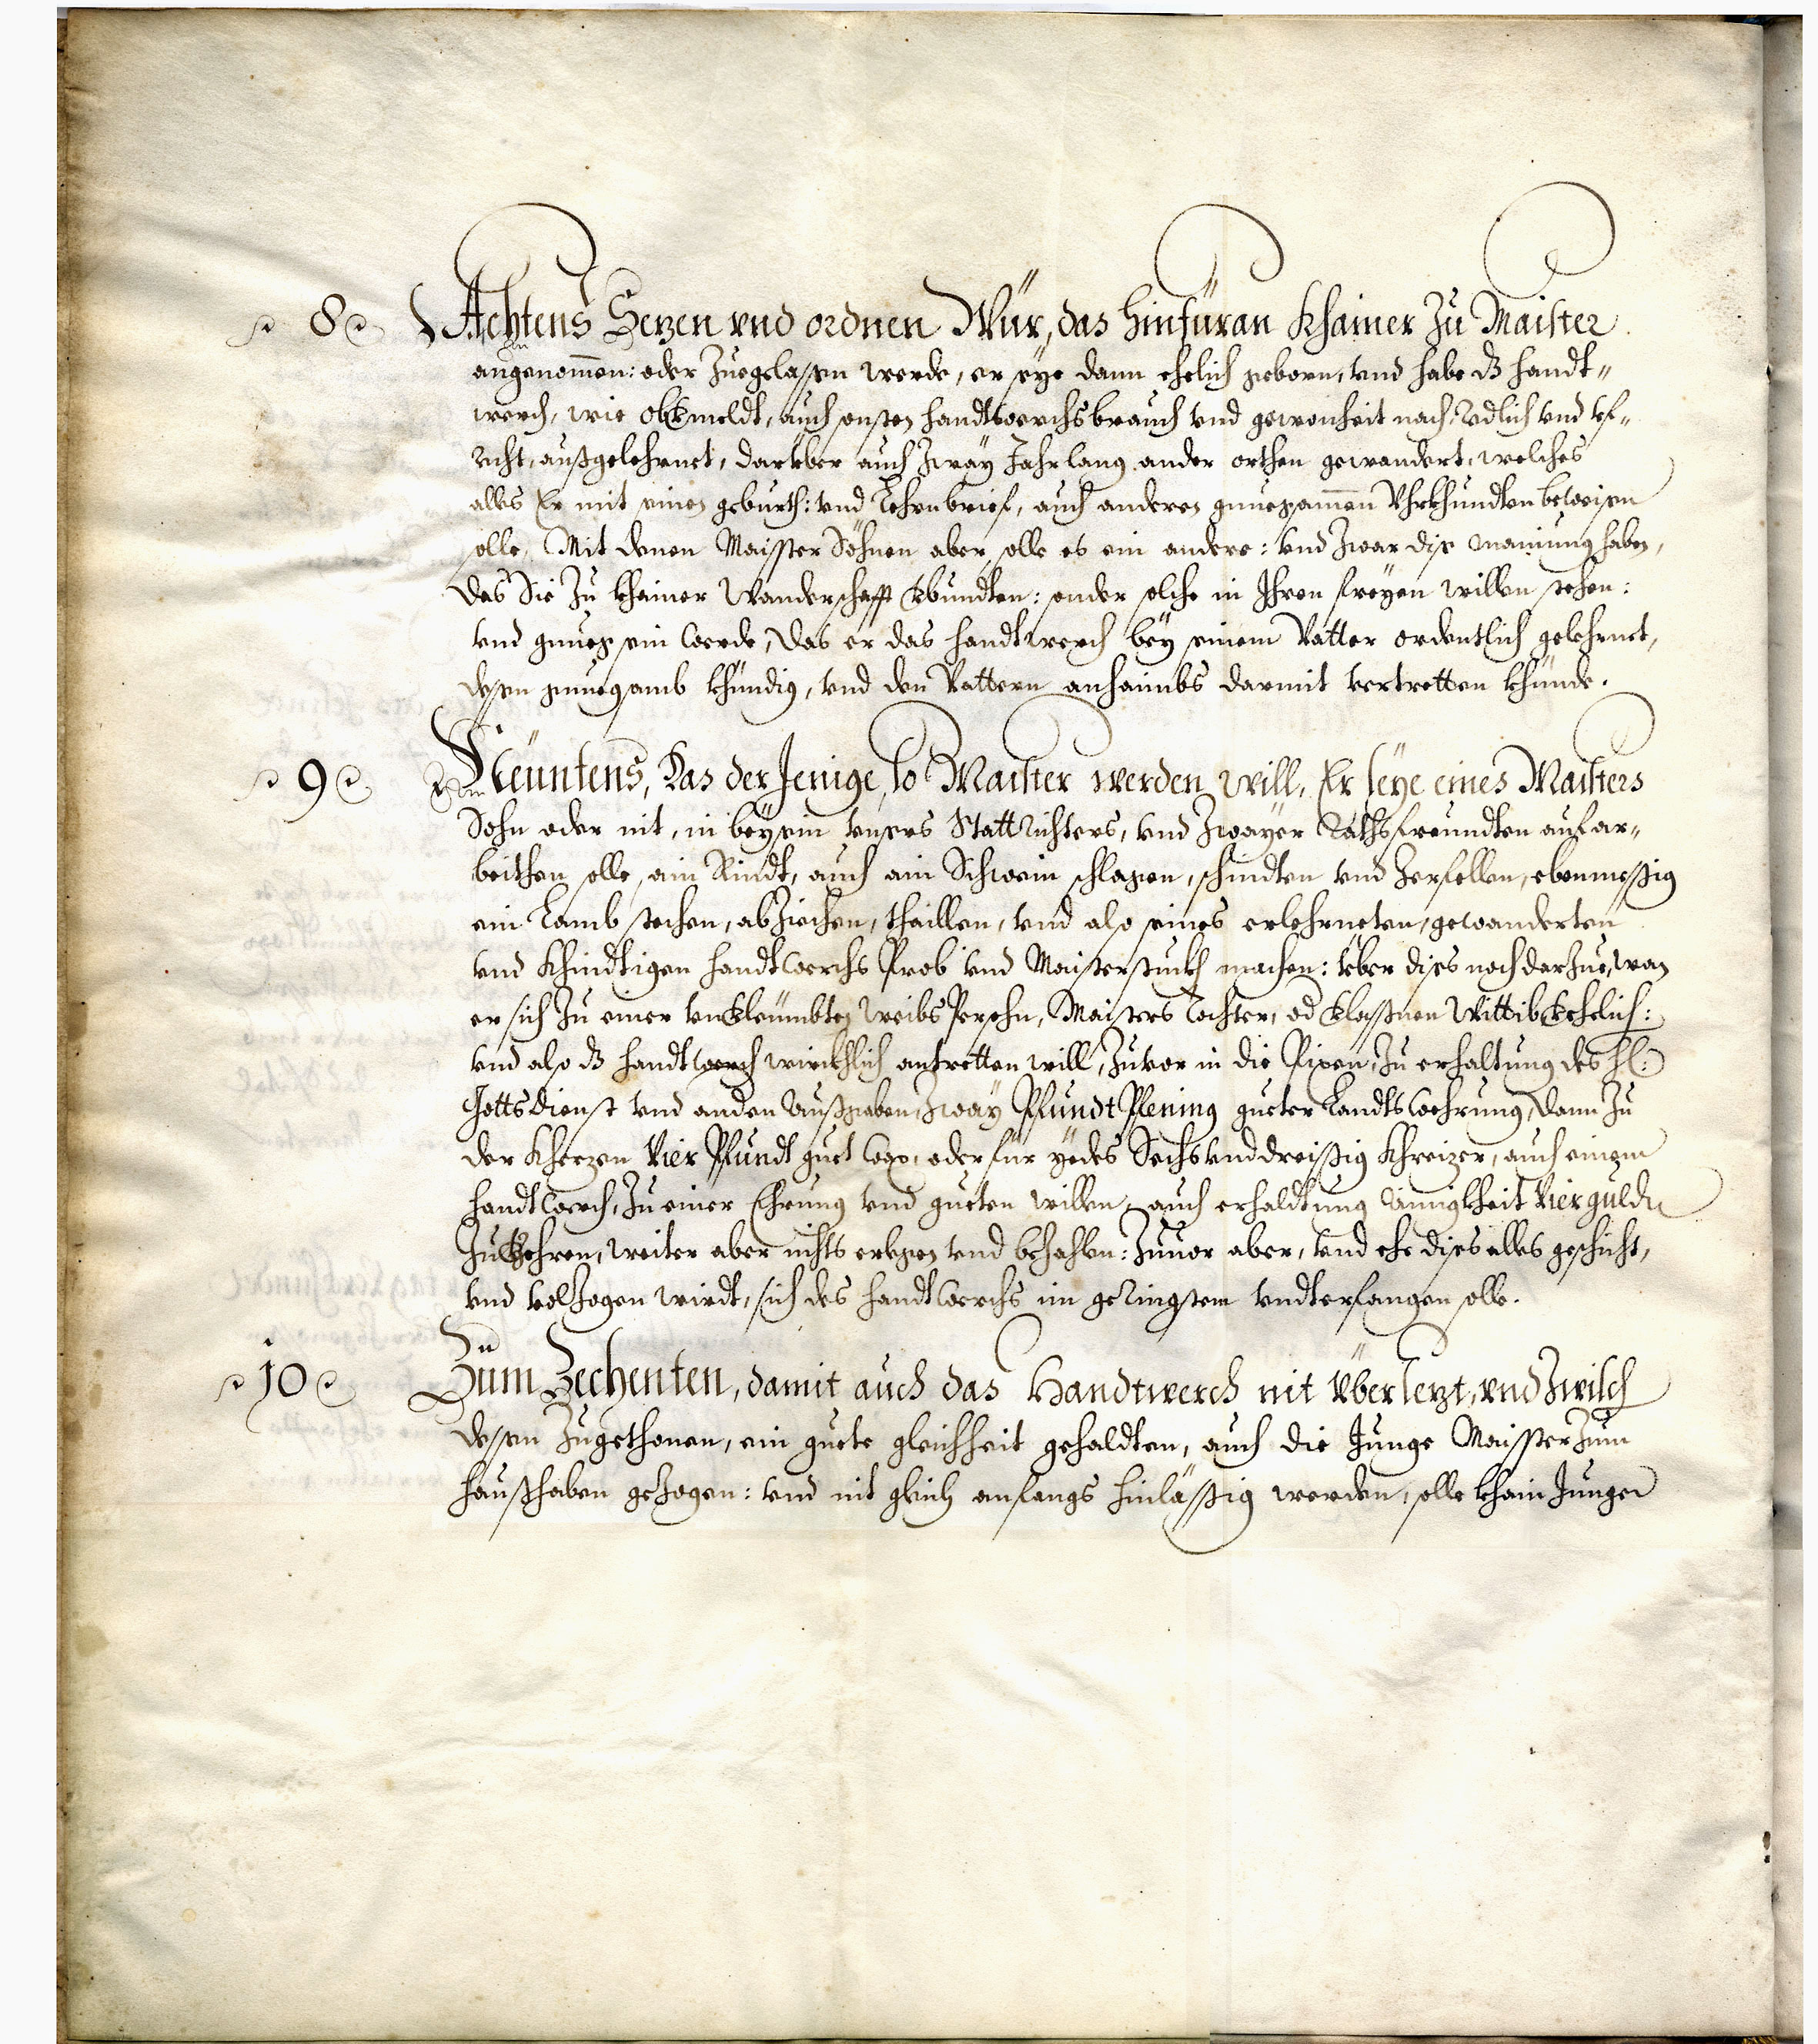 8 Achtens Sezen vnd ordnen Wür, das hinfüran Khainer Zu Maister
angenom̄en: oder Zuegelassen werde, er seye dann ehelich geborn, vnd habe dz handt-
werch, wie obgemeldt, auch sonsten handtwerchsbrauch vnd gewonheit nach, redlich vnd vf-
recht, außgelehrnet, darüber auch Zway Jahr lang ander orthen gewandert, welches
alles Er mit einen geburth: vnd Lehrnbrief, auch anderen gnuegsam̄en Vhrkhundten beweisen
solle, Mit denen Maisster Söhnen aber, solle es ein andere: vnd Zwar dise mainung haben,
das Sie Zu khainer Wanderschafft gebundten: sonder solche in Ihren freyen willen stehen:
vnd gnueg sein werde, das er das handtwerch bey seinem Vatter ordentlich gelehrnet,
dessen gnuegsamb khündig, vnd den Vattern anhaimbs darmit vertretten khünde.
9 Zum Neüntens, Das der Jenige, so Maister werden will, Er seye eines Maisters
Sohn oder nit, in beysein vnsers Stattrichters, vnd Zwayer Rathsfreundten aufar-
beithen solle, ain Rindt, auch ain Schwein schlagen, schindten vnd Zerfellen, ebenmessig
ein Lamb stechen, abZiechen, thaillen, vnd also seines erlehrneten, gewanderten
vnd Khindtigen handtwerchs Prob vnd Maisterstuckh machen: über dises noch darZue, wan
er sich Zu einer vnbeleümbten weibs Persohn, Maisters Tochter, od gelassnen Wittib verehelich:
vnd also dz handtwerch würckhlich antretten will, Zuvor in die Pixen, Zu erhaltung des hl:
Gottsdienst vnd anden außgaben, Zway Pfundt Pfening gueter Landts wehrung, dann Zu
der Kherzen Vier Pfundt guet wax, oder für yedes Sechs vnd dreissig Khreizer, auch einem
handtwerch, Zu einer Ehrung vnd gueten willen, auch erhaldtung ainigkheit Vier guldn
Zuverzehren, weiter aber nichts erlegen vnd bezahlen: Zuuor aber, vnd ehe dises alles geschicht,
vnd volzogen wirdt, sich des handtwerchs im geringstem vndterfangen solle.
10 Zum Zechenten, damit auch das Handtwerch nit übersezt, vnd Zwisch
dessen Zugethonen, ein guete gleichheit gehaldten, auch die Junge Maisster Zum
haußhaben gezogen: vnd nit gleich anfangs hinlässig werden, solle khain Junger